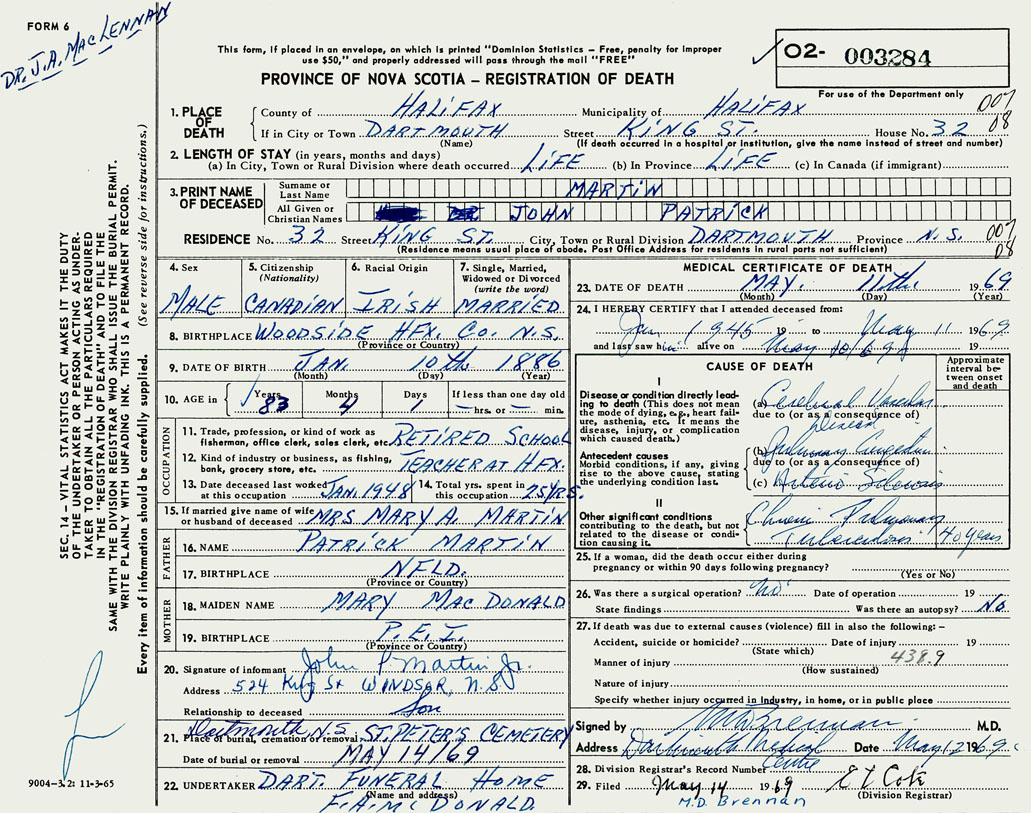 FORM 6
DR. J.A. MACLENNAN
This form, if placed in an envelope, on which is printed "Dominion Statistics – Free, penalty for improper
use $50," and properly addressed will pass through the mail "FREE"
PROVINCE OF NOVA SCOTIA – REGISTRATION OF DEATH
02- 003284
For use of the Department only
007
08
1. PLACE OF DEATH County of HALIFAX Municipality of HALIFAX
If in City or Town DARTMOUTH Street KING ST. House No. 32
(Name) (If death occurred in a hospital or institution, give the name instead of street and number)
2. LENGTH OF STAY (in years, months and days)
(a) In City, Town or Rural Division where death occurred LIFE (b) In Province LIFE (c) In Canada (if immigrant)
3. PRINT NAME OF DECEASED
Surname or Last Name MARTIN
All Given or Christian Names JOHN PATRICK
RESIDENCE No. 32 Street KING ST. City, Town or Rural Division DARTMOUTH Province N.S. 007
08
(Residence means usual place of abode. Post Office Address for residents in rural parts not sufficient)
4. Sex MALE
5. Citizenship (Nationality) CANADIAN
6. Racial Origin IRISH
7. Single, Married, Widowed or Divorced (write the word) MARRIED
8. BIRTHPLACE WOODSIDE HFX. CO. N.S.
(Province or Country)
9. DATE OF BIRTH JAN. 10th 1886
(Month) (Day) (Year)
10. AGE in Years 83 Months 4 Days 1 If less than one day old
hrs. or min.
OCCUPATION
11. Trade, profession or kind of work as
fisherman, office clerk, sales clerk, etc. RETIRED SCHOOL
12. Kind of industry or business, as fishing,
bank, grocery store, etc. TEACHER AT HFX.
13. Date deceased last worked
at this occupation JAN. 1948
14. Total yrs. spent in
this occupation 25 YRS.
15. If married give name of wife
or husband of deceased MRS MARY A. MARTIN
FATHER
16. NAME PATRICK MARTIN
17. BIRTHPLACE NFLD.
(Province or Country)
MOTHER
18. MAIDEN NAME MARY MacDONALD
19. BIRTHPLACE P.E.I.
(Province or Country)
20. Signature of informant John P Martin Jr.
Address 524 King St WINDSOR, N.S
Relationship to deceased Son
Dartmouth, N.S.
21. Place of burial, cremation or removal ST. PETER'S CEMETERY
Date of burial or removal MAY 14/69
22. UNDERTAKER DART. FUNERAL HOME
(Name and address)
F.A. McDONALD.
MEDICAL CERTIFICATE OF DEATH
23. DATE OF DEATH MAY. 11th. 1969
(Month) (Day) (Year)
24. I HEREBY CERTIFY that I attended deceased from:
Jan 1945 19 to May 11 1969
and last saw him alive on May 10/69 19
CAUSE OF DEATH
Approximate interval between onset and death
I
Disease or condition directly leading to death (This does not mean
the mode of dying, e.g., heart failure, asthenia, etc. It means the
disease, injury, or complication
which caused death.)
(a) Cerebral Vascular
Disease
due to (or as a consequence of)
Antecedent causes
Morbid conditions, if any, giving
rise to the above cause, stating
the underlying condition last.
(b) Pulmonary Congestion
due to (or as a consequence of)
(c) Arterio Sclerosis
II
Other significant conditions
contributing to the death, but not
related to the disease or condition causing it.
Chronic Pulmonary
Tuberculosis 40 years
25. If a woman, did the death occur either during
pregnancy or within 90 days following pregnancy?
(Yes or No)
26. Was there a surgical operation? No Date of operation 19
State findings Was there an autopsy? No
27. If death was due to external causes (violence) fill in also the following: –
Accident, suicide or homicide? Date of injury 19
(State which) 438.9
Manner of injury
(How sustained)
Nature of injury
Specify whether injury occurred in Industry, in home, or in public place
Signed by M D Brennan M.D.
Address Dartmouth Medical Centre Date May 12 1969
28. Division Registrar's Record Number
29. Filed May 14 1969 E L Cote
M.D. Brennan (Division Registrar)
SEC. 14 – VITAL STATISTICS ACT MAKES IT THE DUTY
OF THE UNDERTAKER OR PERSON ACTING AS UNDER-
TAKER TO OBTAIN ALL THE PARTICULARS REQUIRED
IN THE "REGISTRATION OF DEATH" AND TO FILE THE
SAME WITH THE DIVISION REGISTRAR WHO SHALL ISSUE THE BURIAL PERMIT.
WRITE PLAINLY WITH UNFADING INK. THIS IS A PERMANENT RECORD.
Every item of information should be carefully supplied. (See reverse side for instructions.)
9004-3.2: 11-3-65